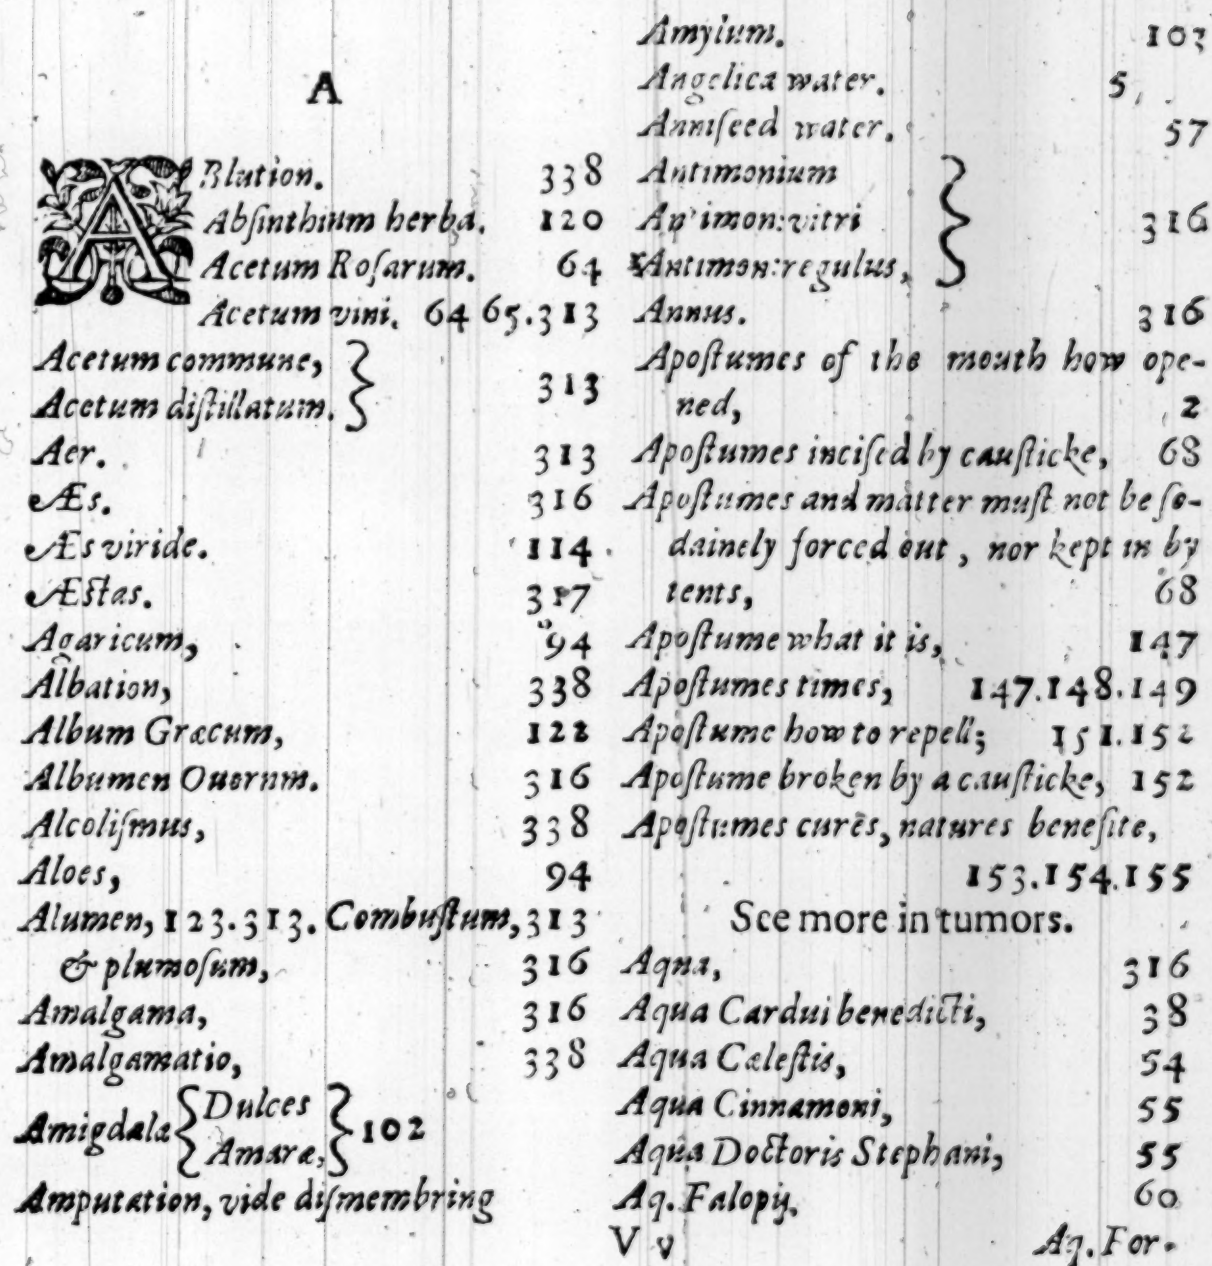 A
ABlution. 338
Absinthium herba. 120
Acetum Rosarum. 64
Acetum vini. 64 65.313
Acetum commune,
Acetum distillatum. } 313
Aer. 313
Æs. 316
Æs viride. 114.
Æstas. 317
Agaricum, 94
Albation, 338
Album Græcum, 122
Albumen Ouorum. 316
Alcolismus, 338
Aloes, 94
Alumen, 123.313. Combustum, 313
& plumosum, 316
Amalgama, 316
Amalgamatio, 338
Amigdalæ { Dulces
Amaræ, } 102
Amputation, vide dismembring
Amylum. 103
Angelica water. 5
Anniseed water. 57
Antimonium
Antimon: vitri } 316
Antimon: regulus,
Annus. 316
Apostumes of the mouth how ope-
ned, 2
Apostumes incised by causticke, 68
Apostumes and matter must not be so-
dainely forced out, nor kept in by
tents, 68
Apostume what it is, 147
Apostumes times, 147.148.149
Apostume how to repell; 151.152
Apostume broken by a causticke, 152
Apostumes cures, natures benefite,
153.154.155
See more in tumors.
Aqua, 316
Aqua Cardui benedicti, 38
Aqua Cælestis, 54
Aqua Cinnamoni, 55
Aqua Doctoris Stephani, 55
Aq. Falopij. 60
V v Aq. For-